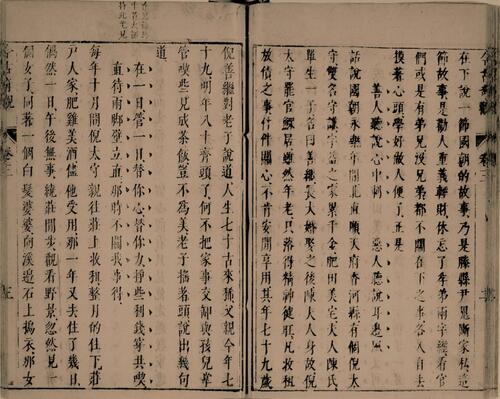 在下說一節國朝的故事乃是滕縣尹鬼斷家私這
節故事是勸人重義輕財休忘了孝弟兩字經看官
們或是有弟兄沒兄弟都不關在下之事各人自去
摸著心頭學好做人便了正是
善人聽說心中刺 惡人聽說耳邊風
話說國朝永樂年間北直順天府香河縣有個倪太
守雙名守謙字益之家累千金肥田美宅夫人陳氏
單生一子名曰善繼長大婚娶之後陳夫人身故倪
太守罷官鰥居雖然年老只落得精神健旺凡收租
放債之事件件關心不肯安閒享用其年七十九歲
倪善繼對老子說道人生七十古來稀父親今年七
十九明年八十齊頭了何不把家事交卸與孩兒掌
管喫些見成茶飯豈不為美老子搖著頭說出幾句
道
在一日管一日替你心替你力掙些利錢穿共喫
直待兩腳壁立直那時不關我事得
每年十月間倪太守親往莊上收租整月的住下莊
戶人家肥雞美酒儘他受用那一年又去住了幾日
偶然一日午後無事繞莊閒步觀看野景忽然見一
個女子同著一個白髮婆婆向溪邊石上搗衣那女
今古奇觀 卷三